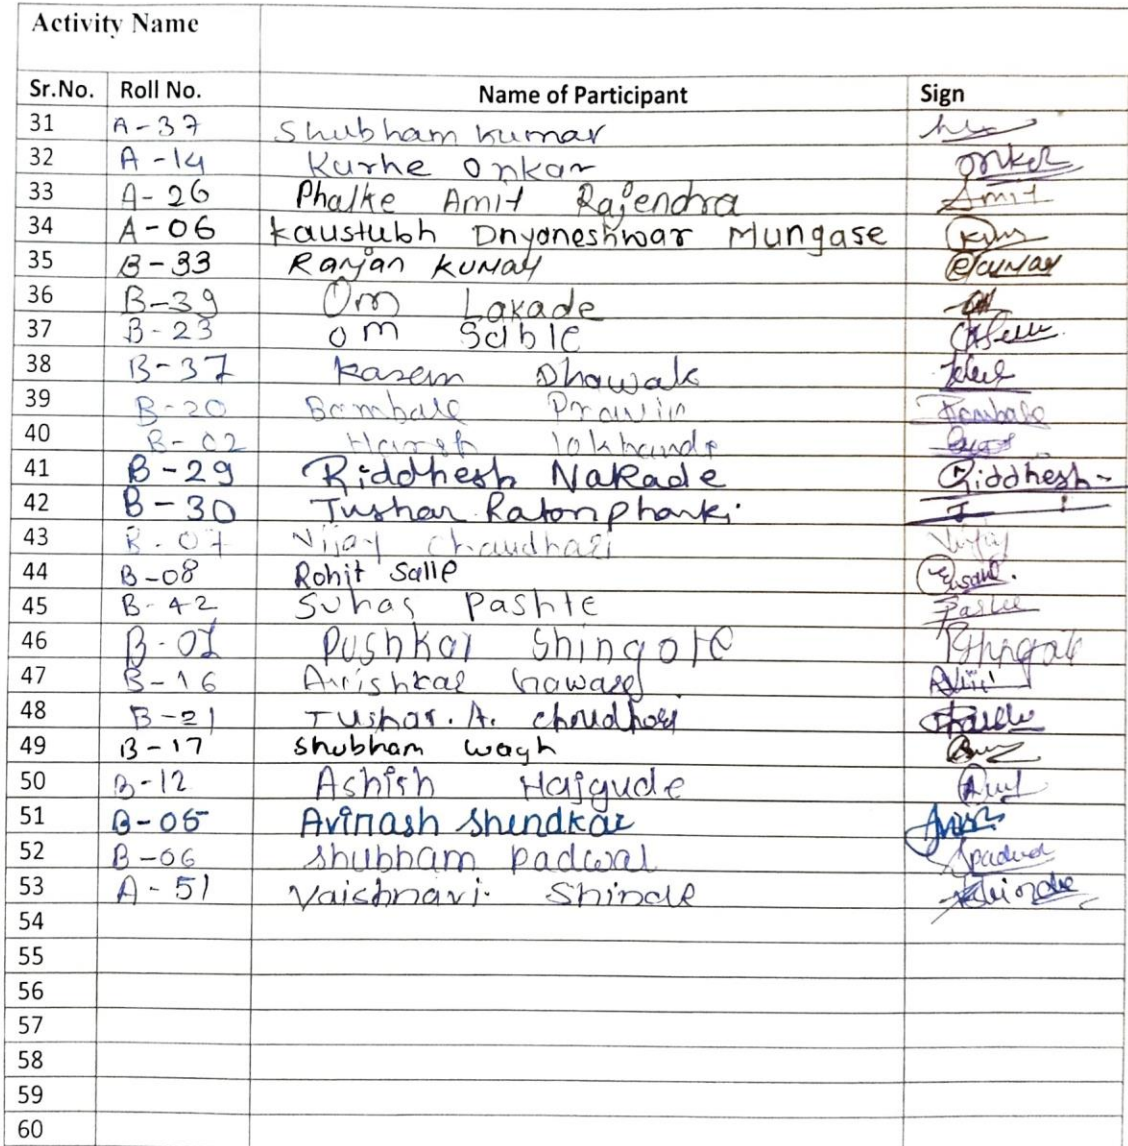 Activity Name
Sr.No. Roll No. Name of Participant Sign
31 A-37 Shubham kumar
32 A-14 Kurhe Onkar Onker
33 A-26 Phalke Amit Rajendra Amit
34 A-06 Kaustubh Dnyaneshwar Mungase
35 B-33 Ranjan KUMAR
36 B-39 Om Lakade
37 B-23 Om Sable
38 B-37 Karem Dhawale
39 B-20 Bambale Pravin Bambale
40 B-02 Harsh lokhande
41 B-29 Riddhesh Nakade Riddhesh
42 B-30 Tushar Ratonpharki
43 B-07 Vijay Chaudhari Vijay
44 B-08 Rohit Salle
45 B-42 Suhas Pashte
46 B-01 Pushkal Shingote
47 B-16 Avishkar Gaware
48 B-21 Tushar. A. Choudhari
49 B-17 Shubham wagh
50 B-12 Ashish Hajgude
51 B-05 Avinash Shendkar
52 B-06 Shubham Padwal Spadwal
53 A-51 Vaishnavi Shinde Shinde
54
55
56
57
58
59
60